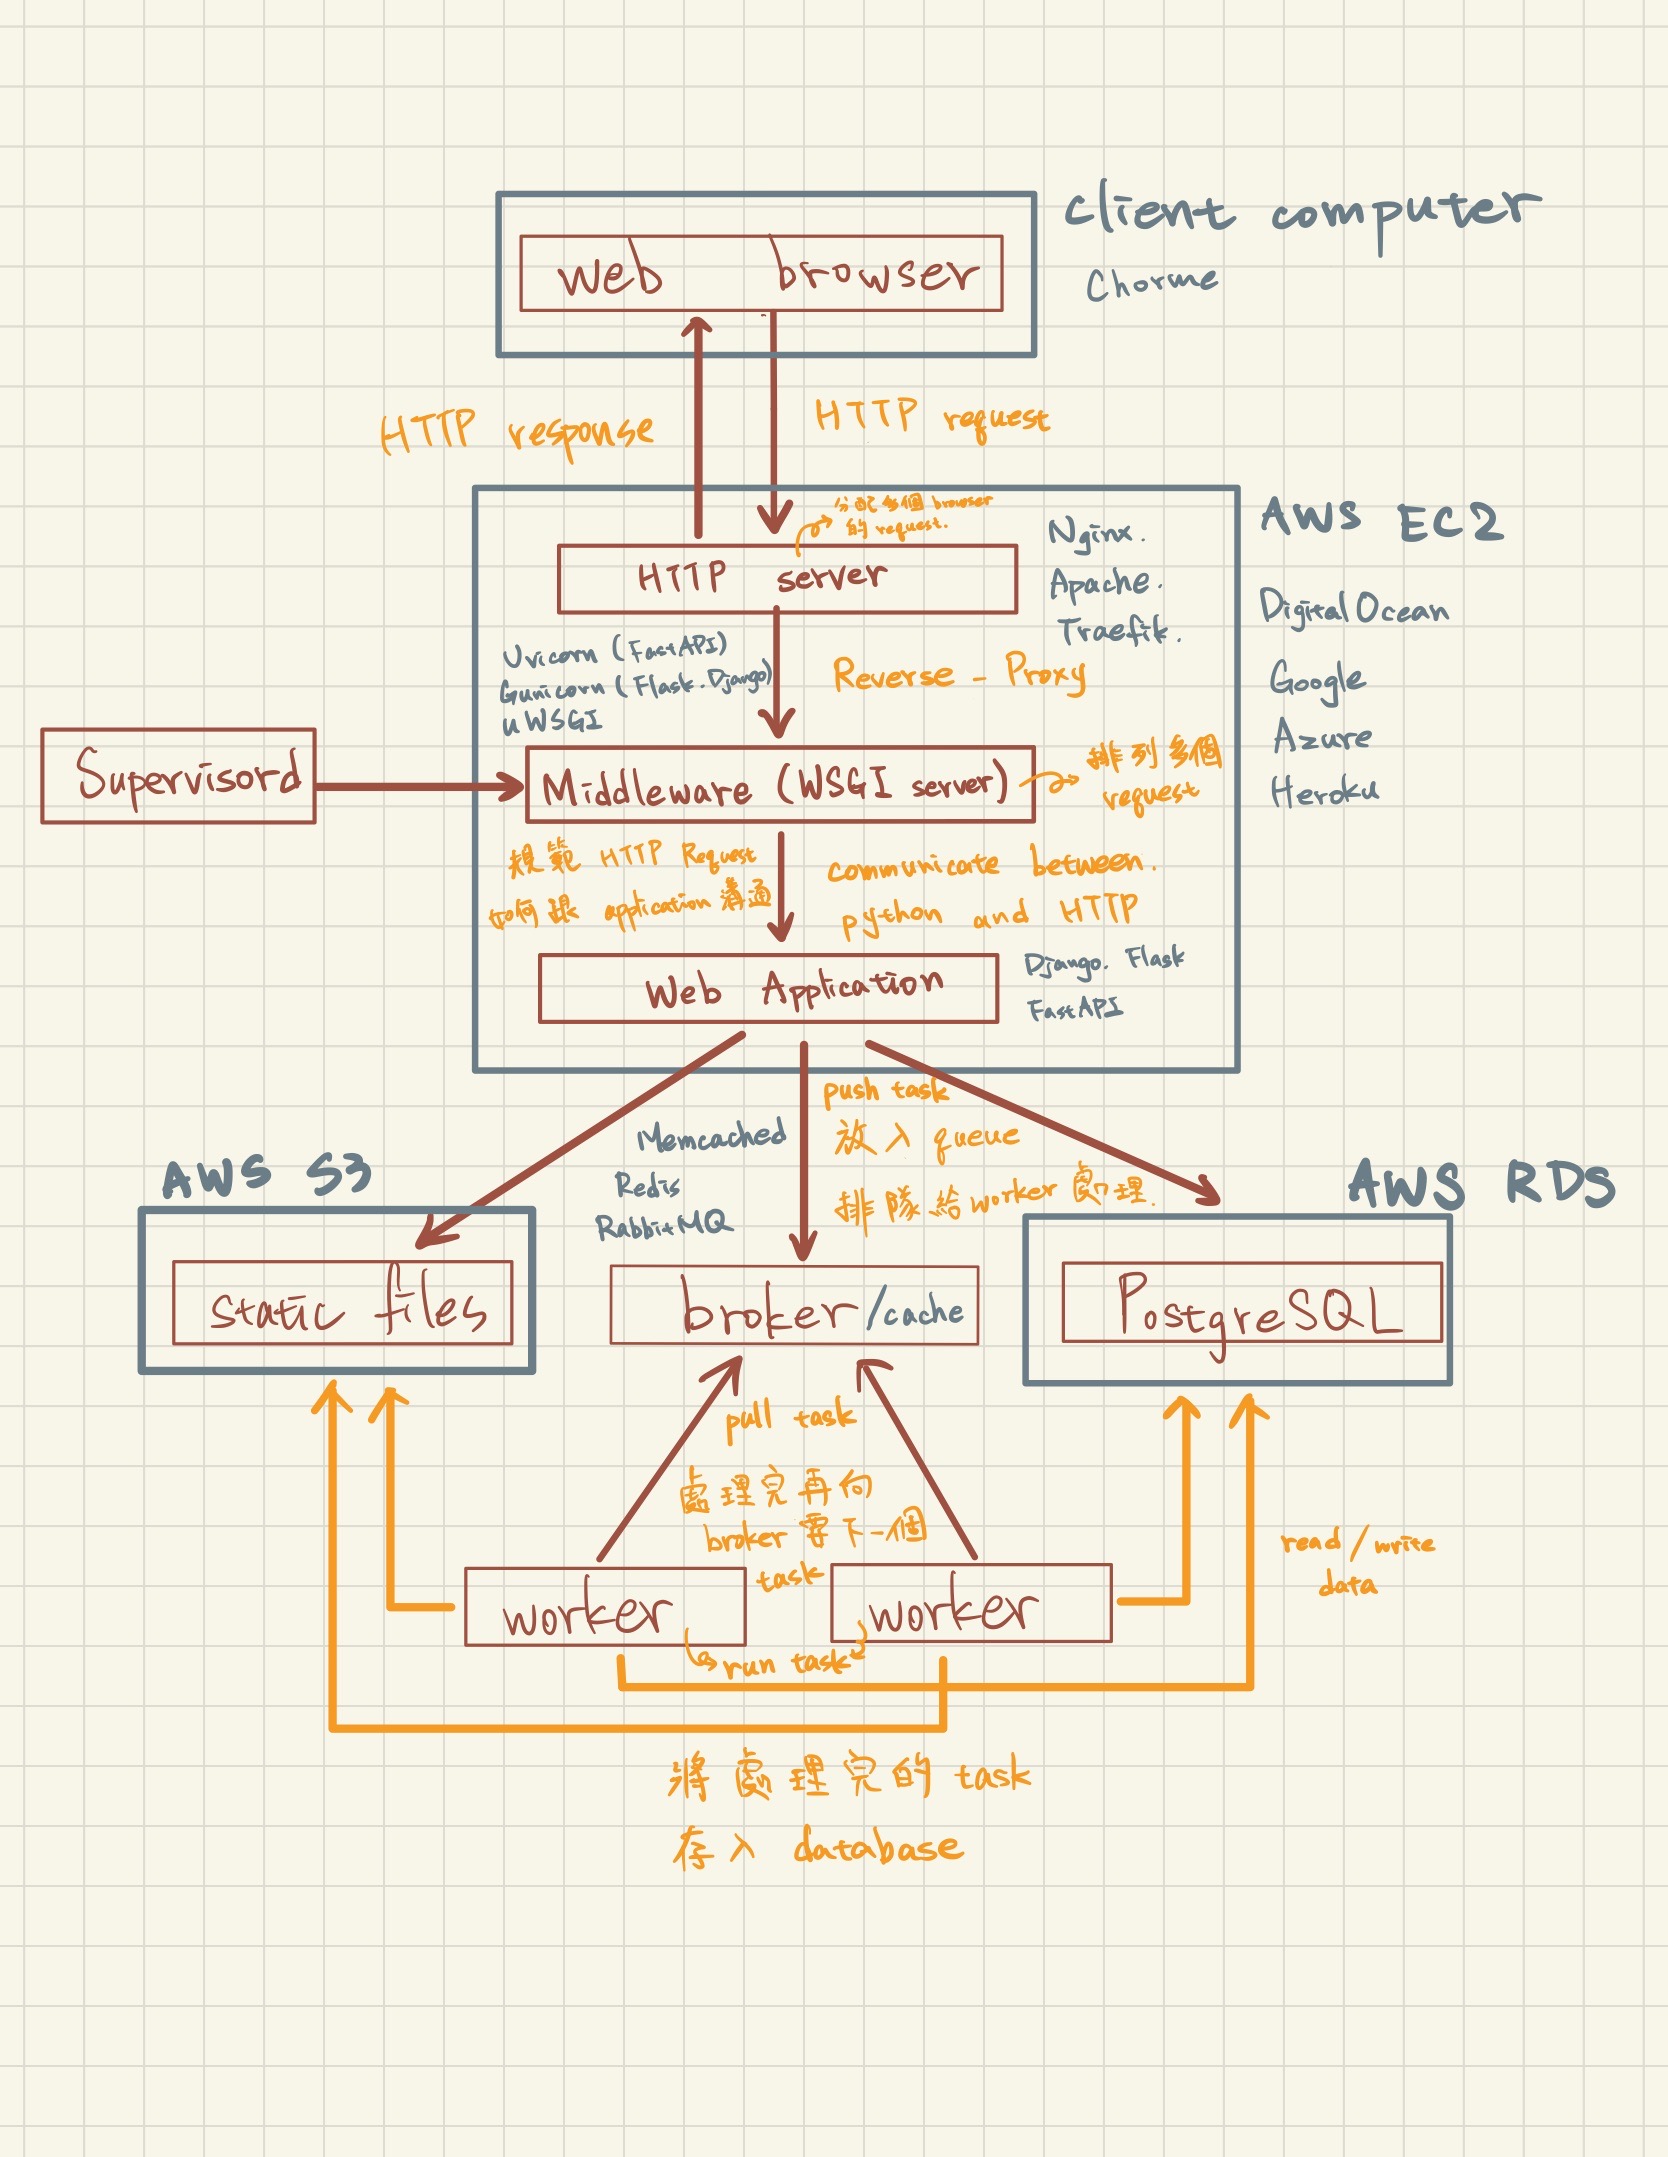 client computer
web browser
Chorme
HTTP response
HTTP request
分配多個 browser
的 request.
Nginx.
Apache.
Traefik.
AWS EC2
DigitalOcean
Google
Azure
Heroku
HTTP server
Uvicorn (FastAPI)
Gunicorn (Flask. Django)
uWSGI
Reverse - Proxy
Supervisord
Middleware (WSGI server)
排列多個
request
規範 HTTP Request
如何跟 application 溝通
communicate between.
python and HTTP
Web Application
Django. Flask
FastAPI
push task
放入 queue
排隊給 worker 處理.
Memcached
Redis
RabbitMQ
AWS S3
static files
broker/cache
AWS RDS
PostgreSQL
pull task
處理完再向
broker 要下一個
task
worker
worker
run task
read/write
data
將處理完的 task
存入 database